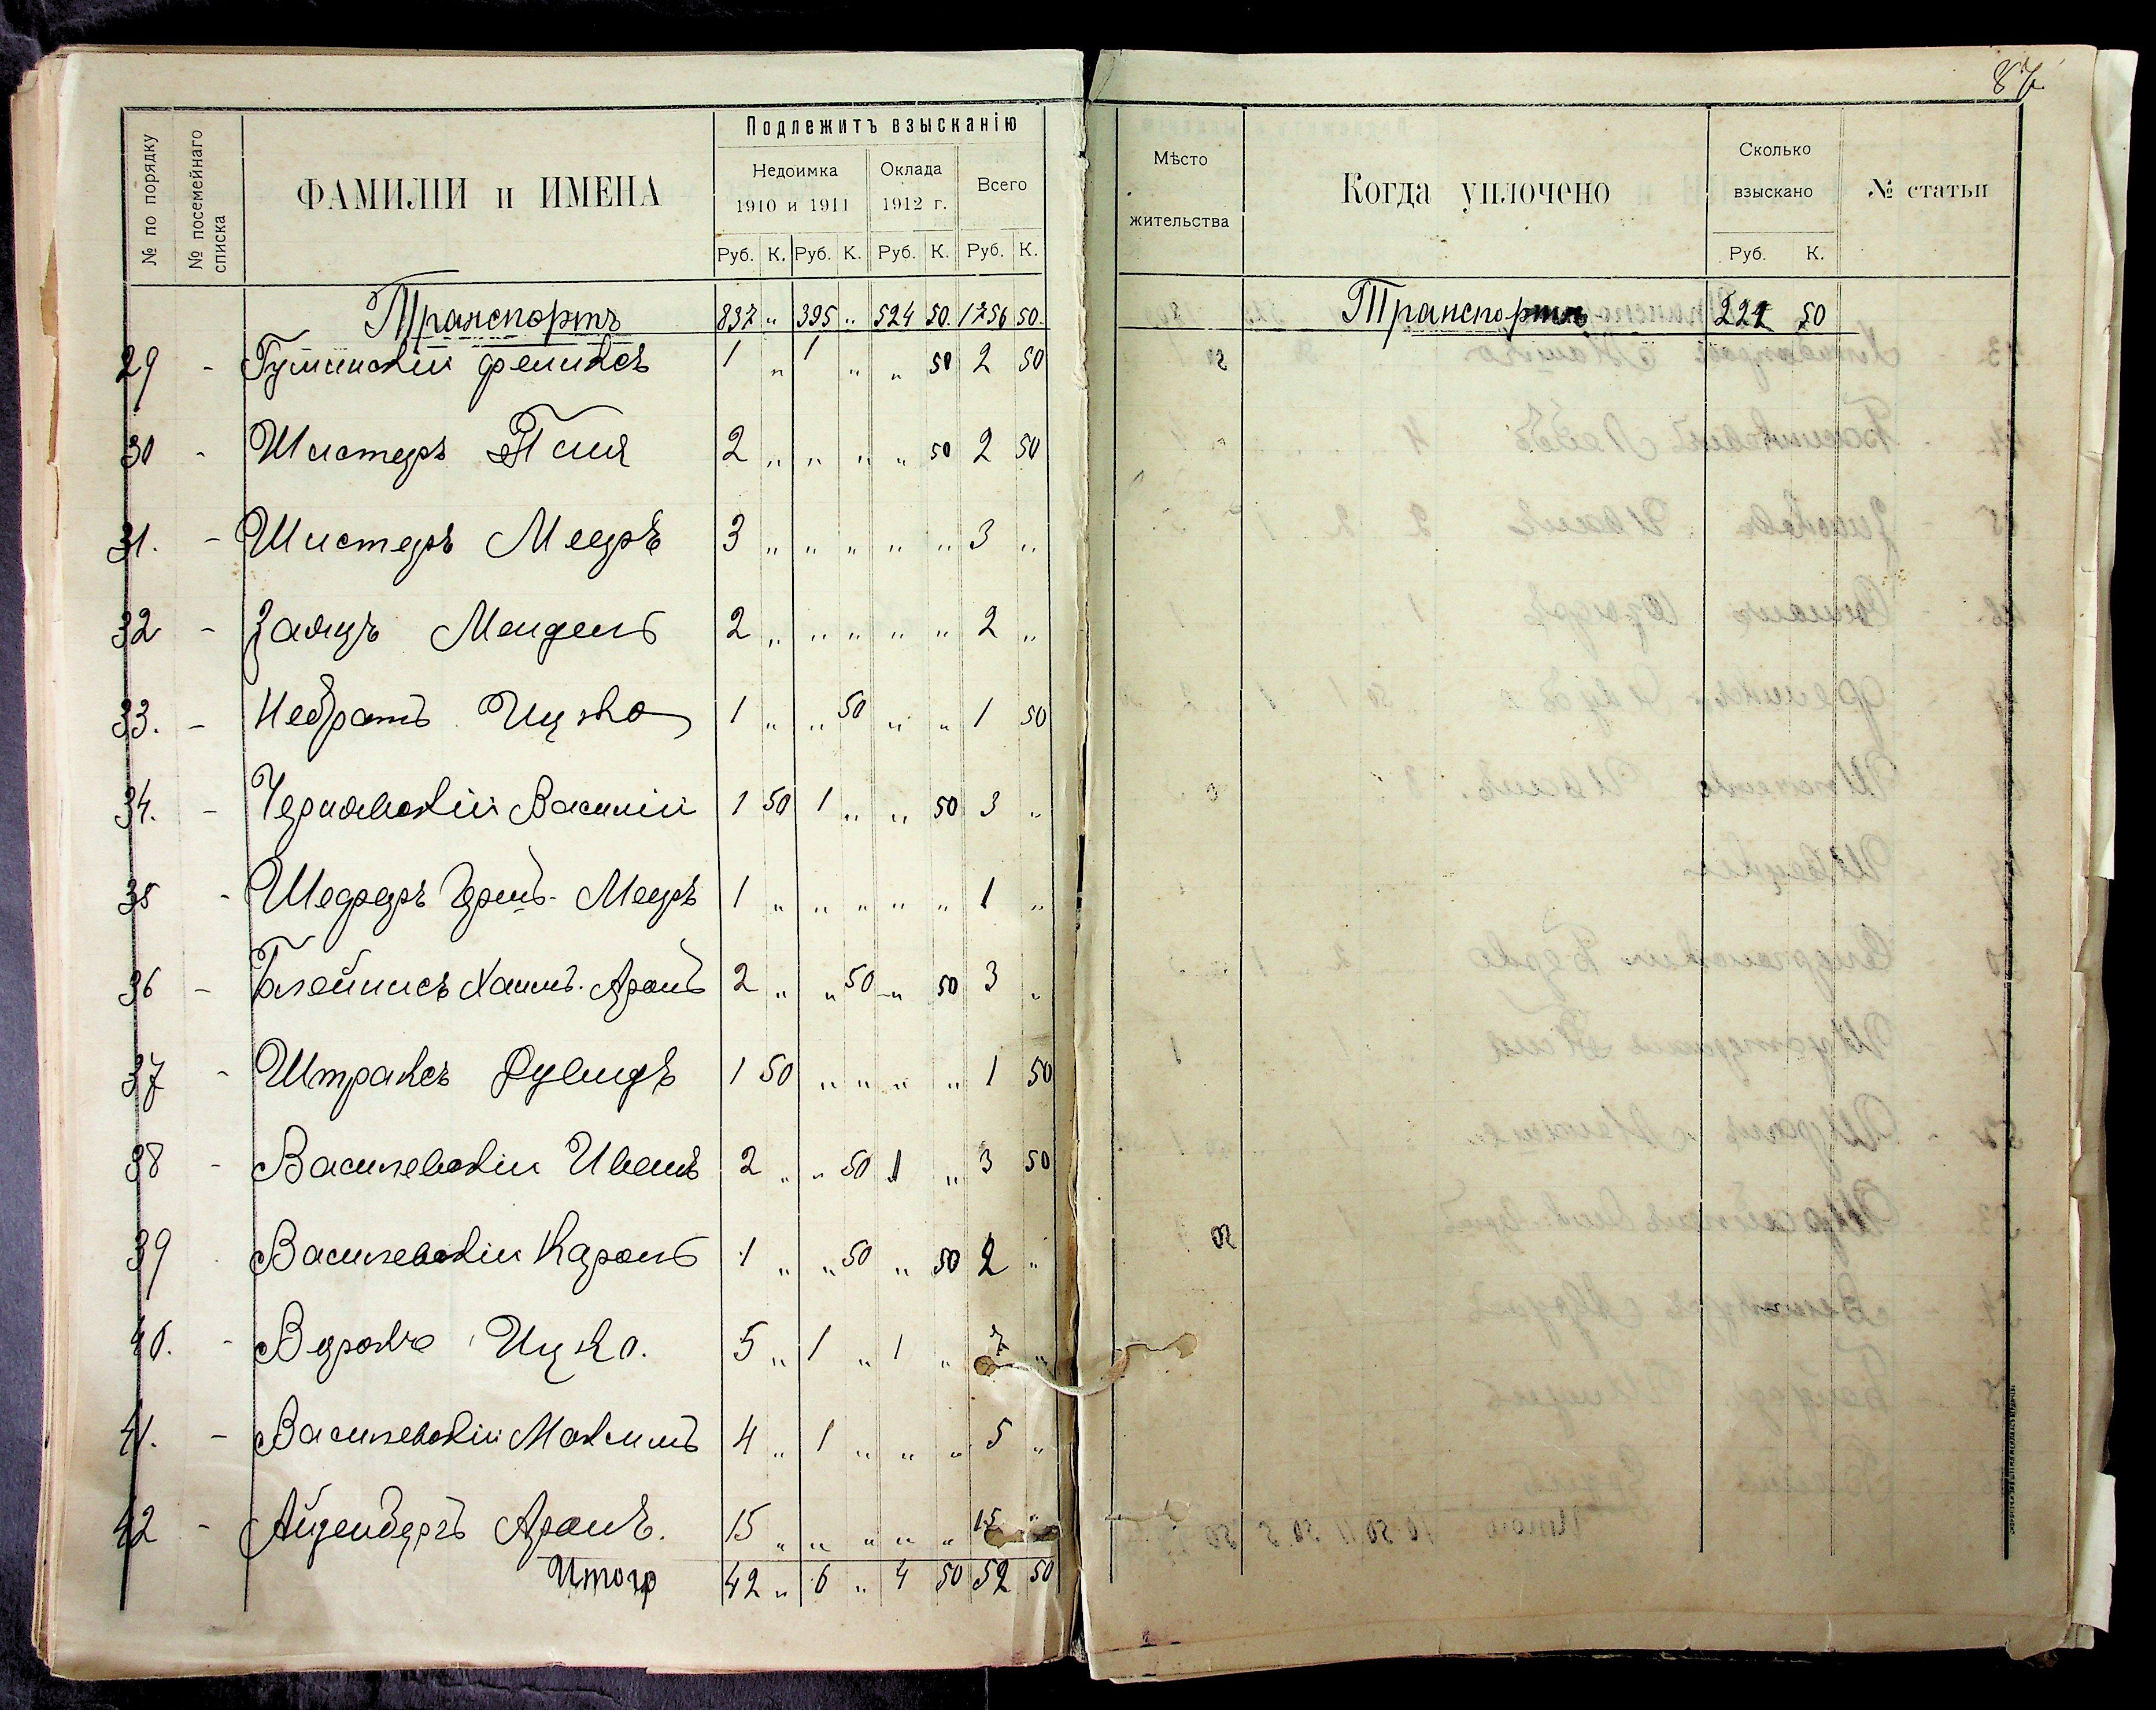 87
№ по порядку
№ посемейнаго списка
ФАМИЛІИ и ИМЕНА
Подлежитъ взысканію
Недоимка
1910 и 1911
Оклада
1912 г.
Всего
Руб. К. Руб. К. Руб. К. Руб. К.
Мѣсто
жительства
Когда уплочено
Сколько
взыскано
Руб. К.
№ статьи
Транспортъ 837 " 395 " 524 50. 1756 50.
Транспортъ 222 50
29 - Гуминскій Феликсъ 1 " 1 " " 50 2 50
30 - Шистеръ 2 " " " " 50 2 50
31. - Шистеръ Мееръ 3 " " " " " 3 "
32 - Заяцъ Мендель 2 " " " " " 2 "
33. - Небратъ Ицко 1 " " 50 " " 1 50
34. - Чернявскій Василій 1 50 1 " " 50 3 "
35 - Шефферъ Мееръ 1 " " " " " 1 "
36 - Хаимъ-Аронъ 2 " " 50 " 50 3 "
37 - Штраксъ Рувидъ 1 50 " " " " 1 50
38 - Василевскій Иванъ 2 " " 50 1 " 3 50
39 Василевскій Каролъ 1 " " 50 " 50 2 "
40. - Ицко. 5 " 1 " 1 " 7 "
41. - Василевскій Максимъ 4 " 1 " " " 5 "
42 - Айзенбергъ Аронъ. 15 " " " " " 15 "
Итого 42 " 6 " 4 50 52 50